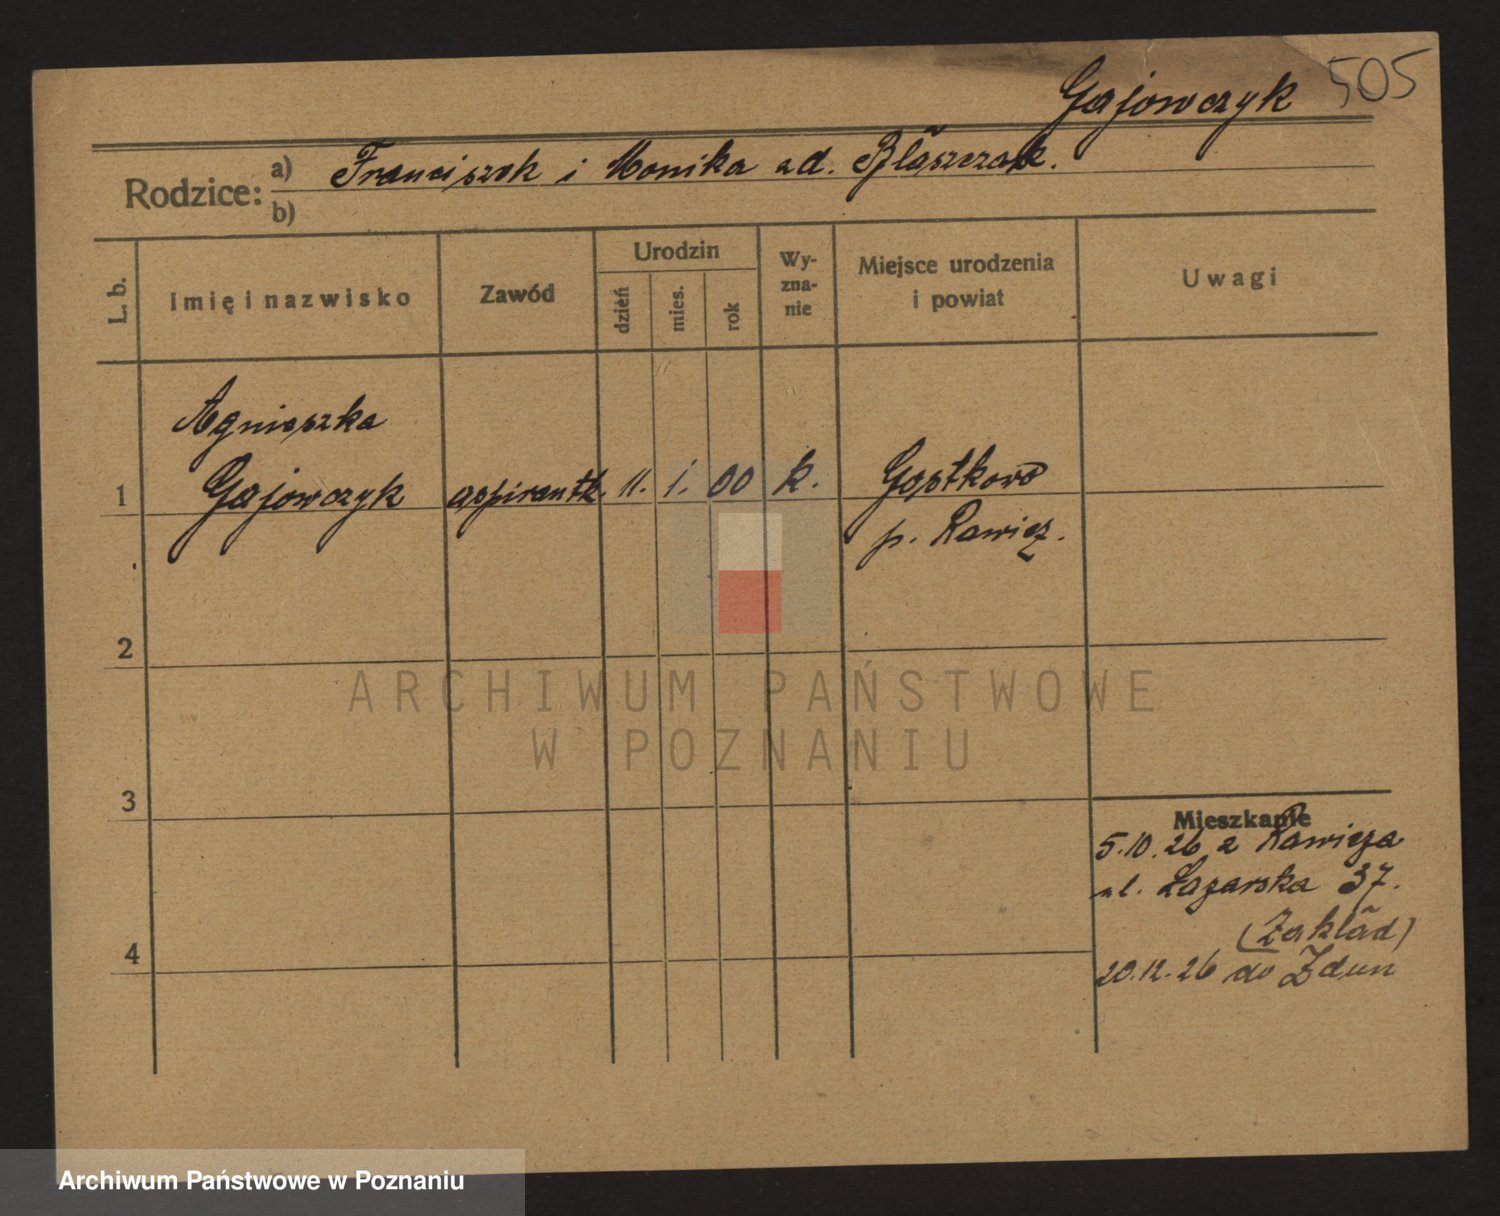 Gajowczyk 505
Rodzice: a) Franciszek i Monika zd. Błaszczak.
b)
L. b. Imię i nazwisko Zawód Urodzin dzień mies. rok Wy-zna-nie Miejsce urodzenia i powiat Uwagi
Agnieszka
1 Gajowczyk aspirantk. 11. 1. 00 k. Gostkowo
p. Rawicz.
2
ARCHIWUM PAŃSTWOWE
W POZNANIU
3
Mieszkanie
5.10.26 z Rawicza
ul. Łazarska 37.
(Zakład)
4
20.12.26 do Zdun
Archiwum Państwowe w Poznaniu